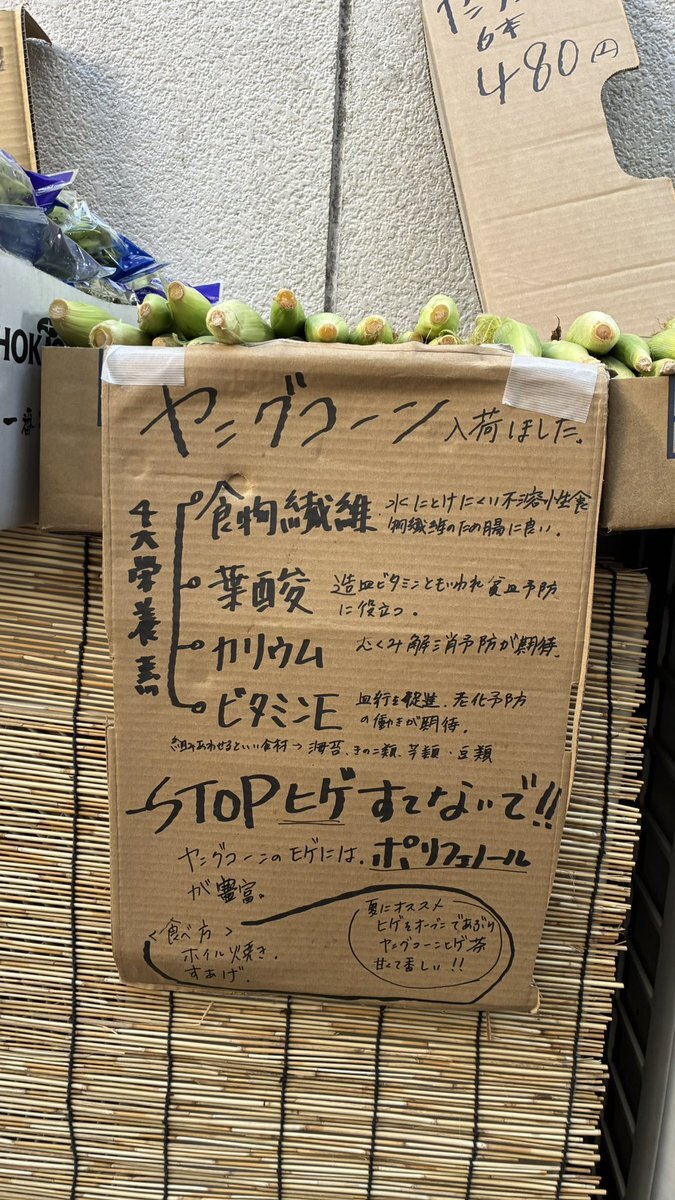 6本
480円
HOK
一番
ヤングコーン 入荷しました。
4大栄養素
食物繊維 水にとけにくい不溶性食
物繊維のため腸に良い。
葉酸 造血ビタミンともいわれ貧血予防
に役立つ。
カリウム むくみ解消予防が期待。
ビタミンE 血行を促進、老化予防
の働きが期待。
組みあわせるといい食材→海苔、きのこ類、芋類・豆類
STOPヒゲすてないで!!
ヤングコーンのヒゲには、ポリフェノール
が豊富。
<食べ方>
ホイル焼き、
すあげ、
夏にオススメ
ヒゲをオーブンであぶり
ヤングコーンヒゲ茶
甘くて香しい!!